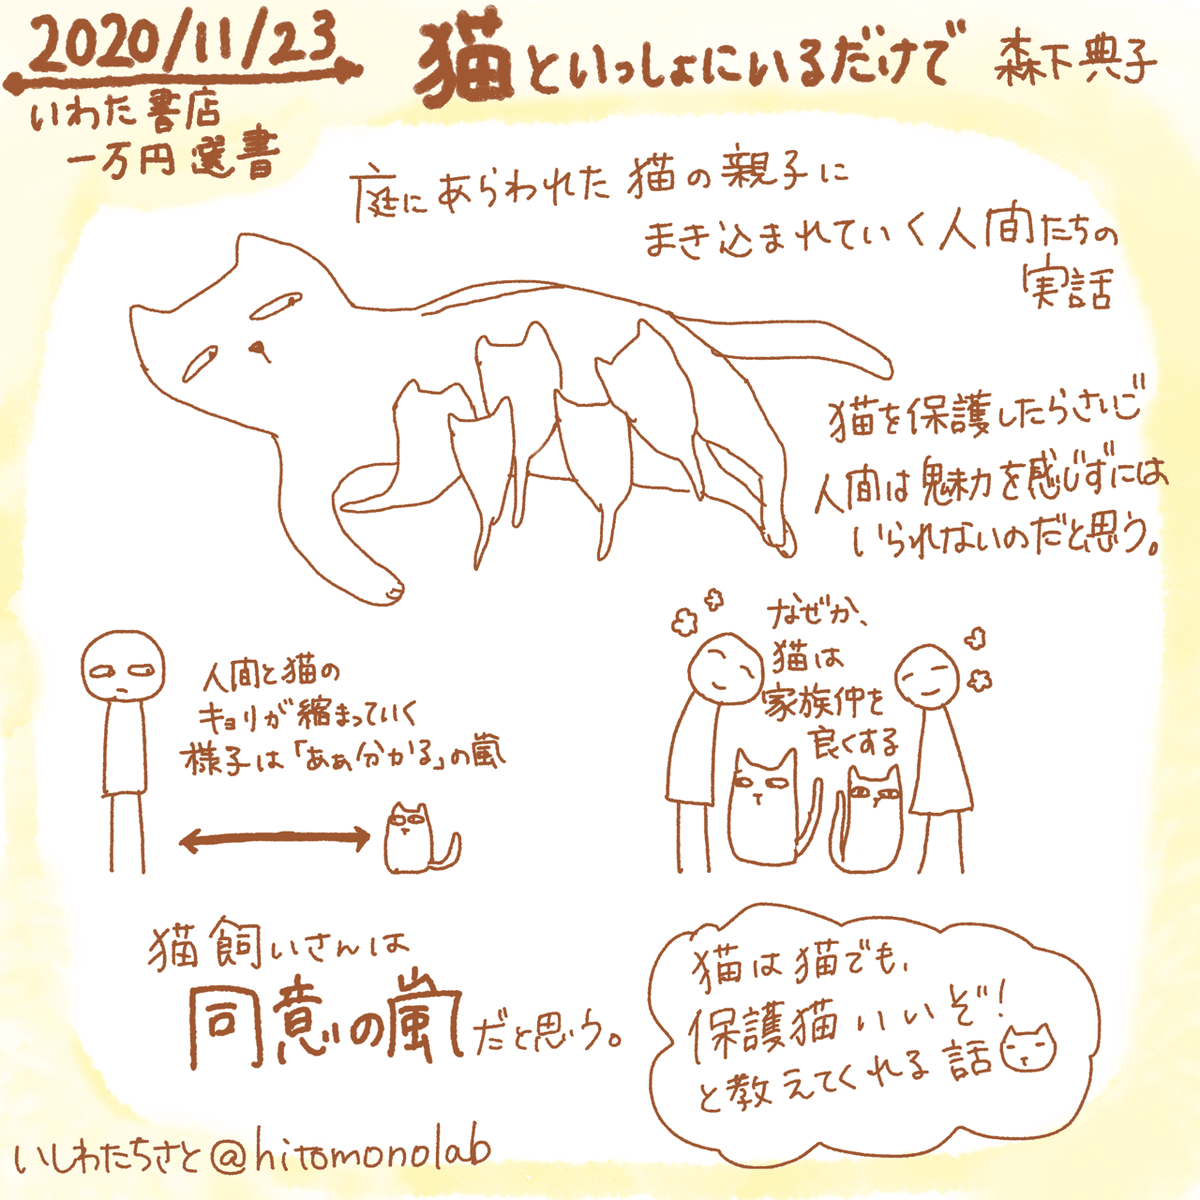 2020/11/23
いわた書店
一万円選書
猫といっしょにいるだけで 森下典子
庭にあらわれた猫の親子に
まき込まれていく人間たちの
実話
猫を保護したらさいご
人間は魅力を感じずには
いられないのだと思う。
人間と猫の
キョリが縮まっていく
様子は「あぁ分かる」の嵐
なぜか、
猫は
家族仲を
良くする
猫飼いさんは
同意の嵐だと思う。
猫は猫でも、
保護猫いいぞ!
と教えてくれる話
いしわたちさと@hitomonolab